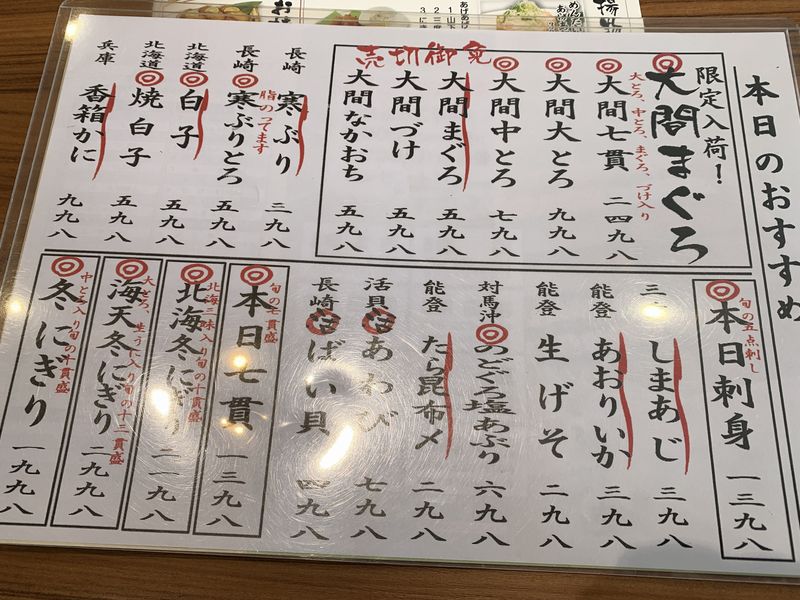 本日のおすすめ
限定入荷！
◎大間まぐろ
大とろ、中とろ、まぐろ、づけ入り
◎大間七貫 二四九八
◎大間大とろ 九九八
◎大間中とろ 七九八
大間まぐろ 五九八
大間づけ 五九八
大間なかおち 五九八
売切御免
長崎 寒ぶり 三九八
脂のってます
長崎 ◎寒ぶりとろ 五九八
北海道 ◎白子 五九八
北海道 ◎焼白子 五九八
兵庫 香箱かに 九九八
旬の五点刺し
◎本日刺身 一三九八
三 しまあじ 三九八
能登 あおりいか 三九八
能登 生げそ 二九八
対馬沖 ◎のどぐろ塩あぶり 六九八
能登 たら昆布〆 二九八
活貝 あわび 七九八
長崎 ばい貝 四九八
旬の七貫盛
◎本日七貫 一三九八
北海三味入り旬の十貫盛
◎北海冬にぎり 二一九八
大とろ、生うに入り旬の十二貫盛
◎海天冬にぎり 二九九八
中とろ入り旬の十貫盛
◎冬にぎり 一九九八